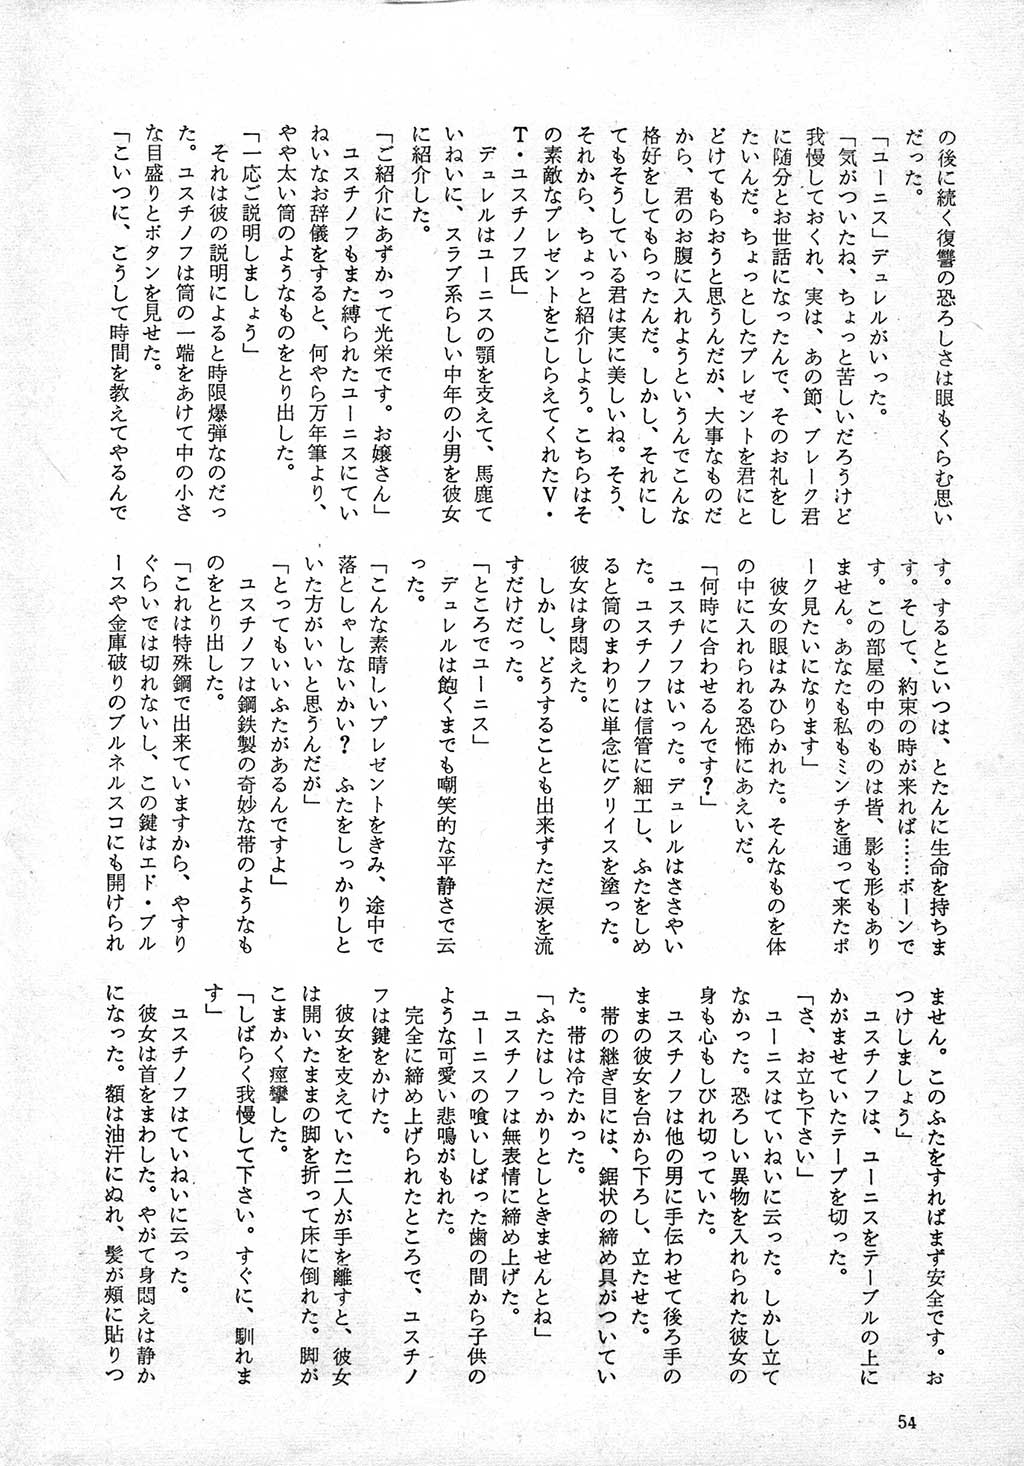 の後に続く復讐の恐ろしさは眼もくらむ思い
だった。
「ユーニス」デュレルがいった。
「気がついたね、ちょっと苦しいだろうけど
我慢しておくれ、実は、あの節、ブレーク君
に随分とお世話になったんで、そのお礼をし
たいんだ。ちょっとしたプレゼントを君にと
どけてもらおうと思うんだが、大事なものだ
から、君のお腹に入れようというんでこんな
格好をしてもらったんだ。しかし、それにし
てもそうしている君は実に美しいね。そう、
それから、ちょっと紹介しよう。こちらはそ
の素敵なプレゼントをこしらえてくれたV・
T・ユスチノフ氏」
デュレルはユーニスの顎を支えて、馬鹿て
いねいに、スラブ系らしい中年の小男を彼女
に紹介した。
「ご紹介にあずかって光栄です。お嬢さん」
ユスチノフもまた縛られたユーニスにてい
ねいなお辞儀をすると、何やら万年筆より、
やや太い筒のようなものをとり出した。
「一応ご説明しましょう」
それは彼の説明によると時限爆弾なのだっ
た。ユスチノフは筒の一端をあけて中の小さ
な目盛りとボタンを見せた。
「こいつに、こうして時間を教えてやるんで
す。するとこいつは、とたんに生命を持ちま
す。そして、約束の時が来れば……ボーンで
す。この部屋の中のものは皆、影も形もあり
ません。あなたも私もミンチを通って来たボ
ーク見たいになります」
彼女の眼はみひらかれた。そんなものを体
の中に入れられる恐怖にあえいだ。
「何時に合わせるんです?」
ユスチノフはいった。デュレルはささやい
た。ユスチノフは信管に細工し、ふたをしめ
ると筒のまわりに単念にグリイスを塗った。
彼女は身悶えた。
しかし、どうすることも出来ずただ涙を流
すだけだった。
「ところでユーニス」
デュレルは飽くまでも嘲笑的な平静さで云
った。
「こんな素晴しいプレゼントをきみ、途中で
落としゃしないかい? ふたをしっかりしと
いた方がいいと思うんだが」
「とってもいいふたがあるんですよ」
ユスチノフは鋼鉄製の奇妙な帯のようなも
のをとり出した。
「これは特殊鋼で出来ていますから、やすり
ぐらいでは切れないし、この鍵はエド・ブル
ースや金庫破りのブルネルスコにも開けられ
ません。このふたをすればまず安全です。お
つけしましょう」
ユスチノフは、ユーニスをテーブルの上に
かがませていたテープを切った。
「さ、お立ち下さい」
ユーニスはていねいに云った。しかし立て
なかった。恐ろしい異物を入れられた彼女の
身も心もしびれ切っていた。
ユスチノフは他の男に手伝わせて後ろ手の
ままの彼女を台から下ろし、立たせた。
帯の継ぎ目には、鋸状の締め具がついてい
た。帯は冷たかった。
「ふたはしっかりとしときませんとね」
ユスチノフは無表情に締め上げた。
ユーニスの喰いしばった歯の間から子供の
ような可愛い悲鳴がもれた。
完全に締め上げられたところで、ユスチノ
フは鍵をかけた。
彼女を支えていた二人が手を離すと、彼女
は開いたままの脚を折って床に倒れた。脚が
こまかく痙攣した。
「しばらく我慢して下さい。すぐに、馴れま
す」
ユスチノフはていねいに云った。
彼女は首をまわした。やがて身悶えは静か
になった。額は油汗にぬれ、髪が頬に貼りつ
54